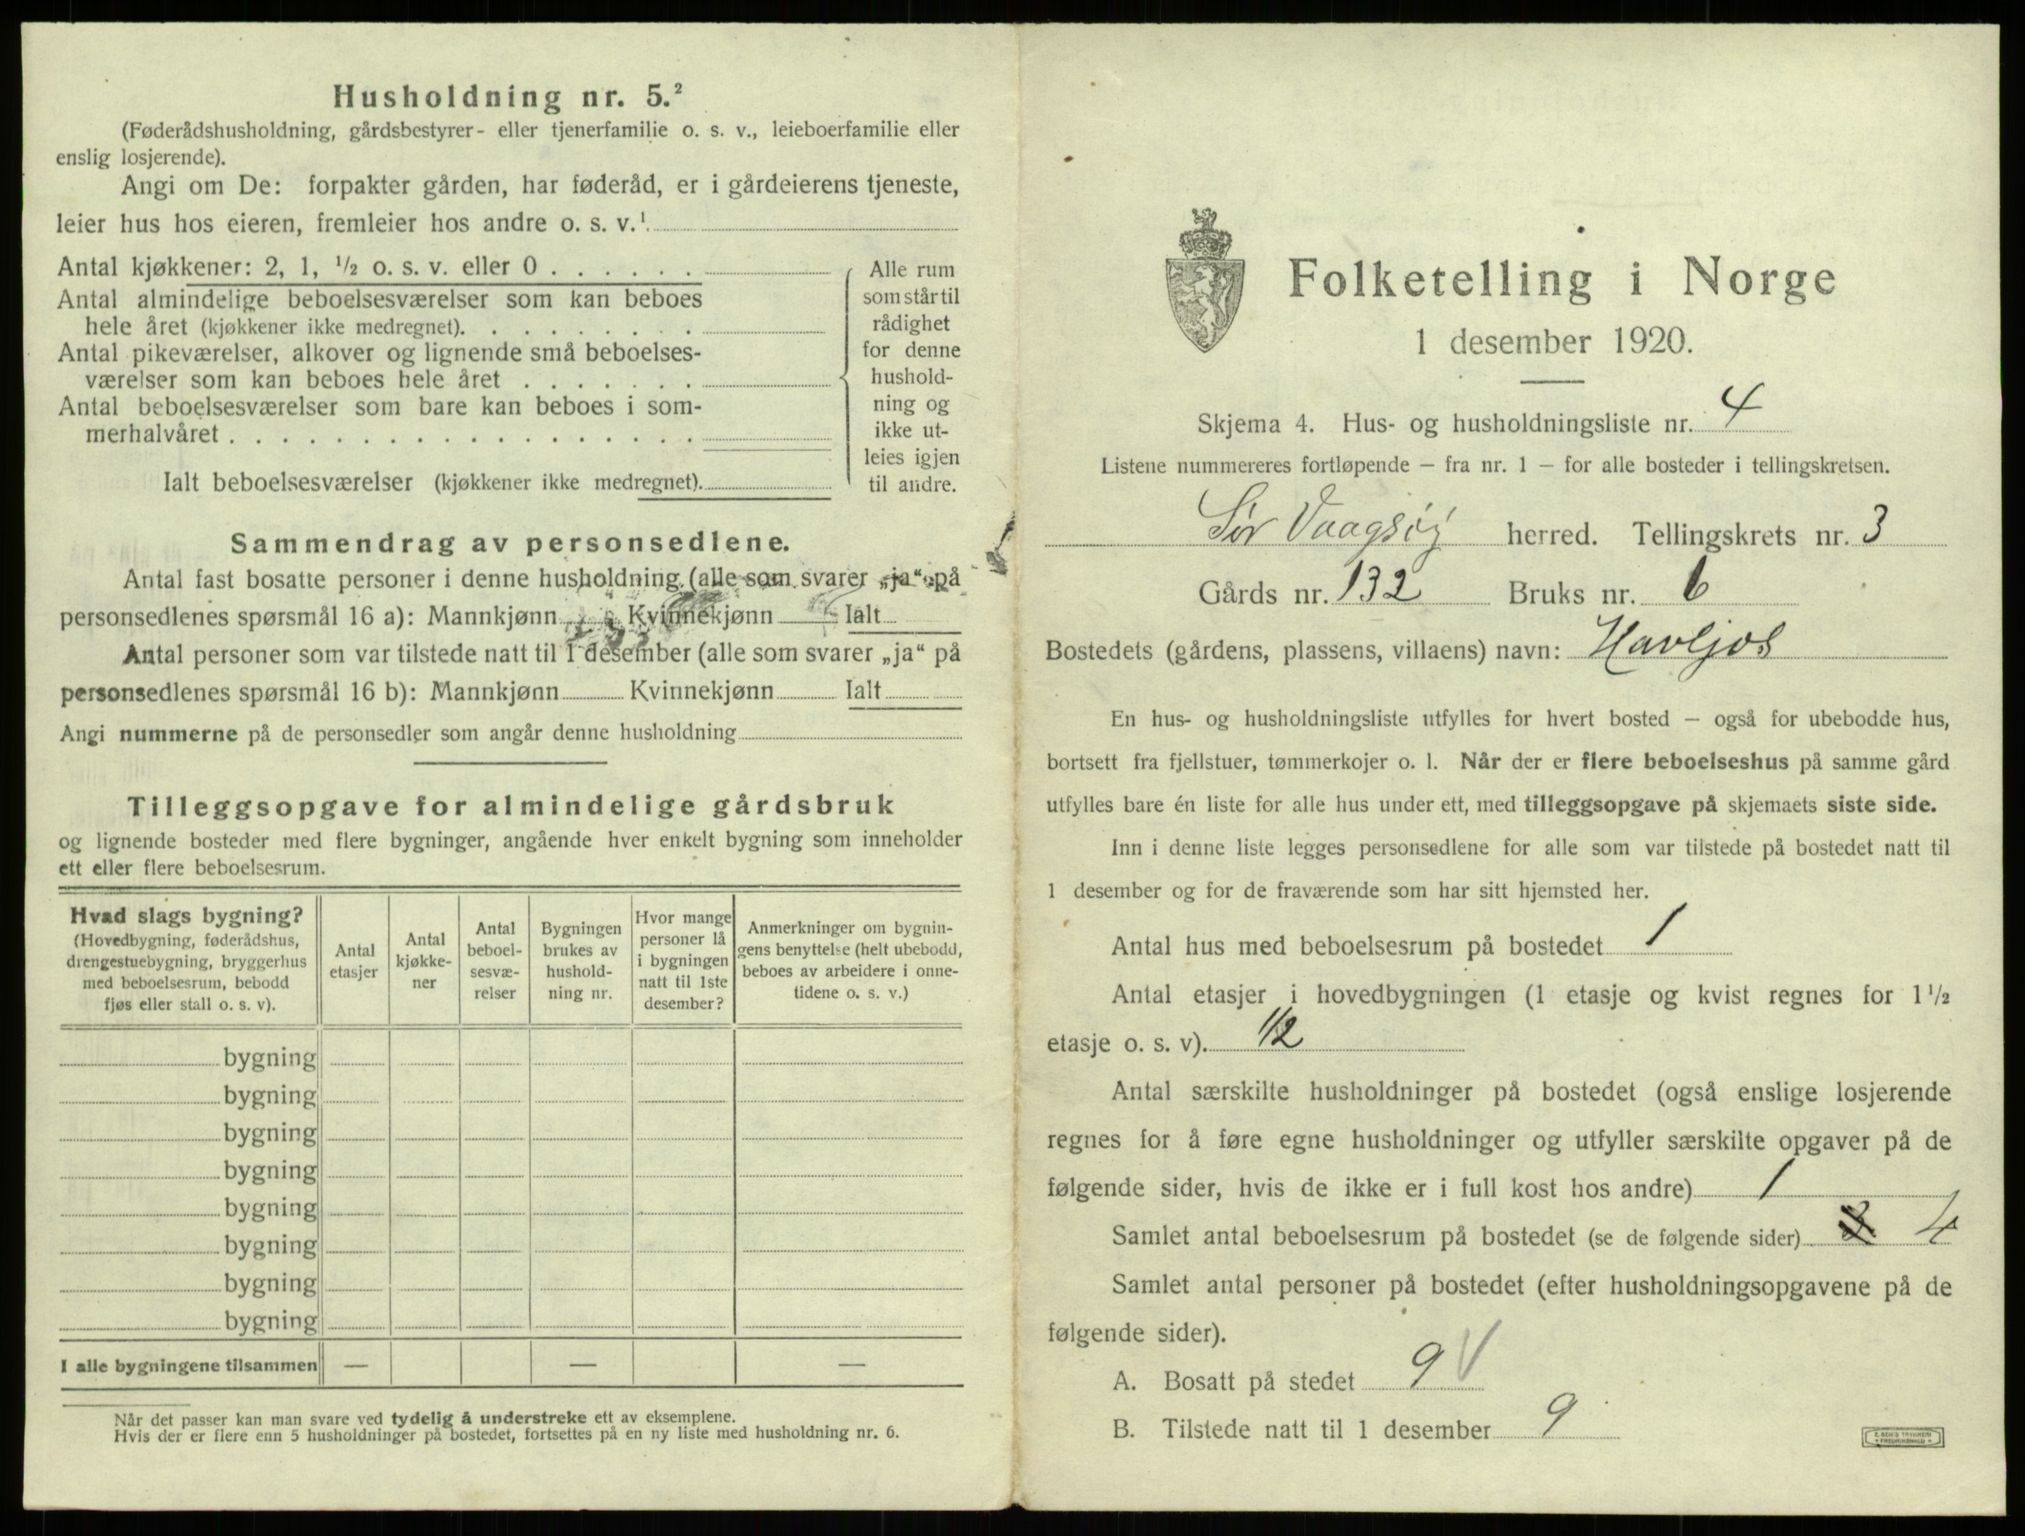 Husholdning nr. 5.²
(Føderådshusholdning, gårdsbestyrer- eller tjenerfamilie o. s. v., leieboerfamilie eller
enslig losjerende).
Angi om De: forpakter gården, har føderåd, er i gårdeierens tjeneste,
leier hus hos eieren, fremleier hos andre o. s. v.¹
Antal kjøkkener: 2, 1, ½ o. s. v. eller 0 . . . . . .
Antal almindelige beboelsesværelser som kan beboes
hele året (kjøkkener ikke medregnet). . . . . . . . .
Antal pikeværelser, alkover og lignende små beboelses-
værelser som kan beboes hele året . . . . . . .
Antal beboelsesværelser som bare kan beboes i som-
merhalvåret . . . . . . . . . . . . . . . . . .
Ialt beboelsesværelser (kjøkkener ikke medregnet).
Alle rum
som står til
rådighet
for denne
hushold-
ning og
ikke ut-
leies igjen
til andre.
Sammendrag av personsedlene.
Antal fast bosatte personer i denne husholdning (alle som svarer „ja“ på
personsedlenes spørsmål 16 a): Mannkjønn Kvinnekjønn Ialt
Antal personer som var tilstede natt til 1 desember (alle som svarer „ja“ på
personsedlenes spørsmål 16 b): Mannkjønn Kvinnekjønn Ialt
Angi nummerne på de personsedler som angår denne husholdning
Tilleggsopgave for almindelige gårdsbruk
og lignende bosteder med flere bygninger, angående hver enkelt bygning som inneholder
ett eller flere beboelsesrum.
Hvad slags bygning?
(Hovedbygning, føderådshus,
drengestuebygning, bryggerhus
med beboelsesrum, bebodd
fjøs eller stall o. s. v).
Antal
etasjer
Antal
kjøkke-
ner
Antal
beboel-
sesvæ-
relser
Bygningen
brukes av
hushold-
ning nr.
Hvor mange
personer lå
i bygningen
natt til 1ste
desember?
Anmerkninger om bygnin-
gens benyttelse (helt ubebodd,
beboes av arbeidere i onne-
tidene o. s. v.)
bygning
bygning
bygning
bygning
bygning
bygning
bygning
bygning
I alle bygningene tilsammen — — —
Når det passer kan man svare ved tydelig å understreke ett av eksemplene.
Hvis der er flere enn 5 husholdninger på bostedet, fortsettes på en ny liste med husholdning nr. 6.
Folketelling i Norge
1 desember 1920.
Skjema 4. Hus- og husholdningsliste nr. 4
Listene nummereres fortløpende — fra nr. 1 — for alle bosteder i tellingskretsen.
Sør Vaagsøy herred. Tellingskrets nr. 3
Gårds nr. 132 Bruks nr. 6
Bostedets (gårdens, plassens, villaens) navn: Havljos
En hus- og husholdningsliste utfylles for hvert bosted — også for ubebodde hus,
bortsett fra fjellstuer, tømmerkojer o. l. Når der er flere beboelseshus på samme gård
utfylles bare én liste for alle hus under ett, med tilleggsopgave på skjemaets siste side.
Inn i denne liste legges personsedlene for alle som var tilstede på bostedet natt til
1 desember og for de fraværende som har sitt hjemsted her.
Antal hus med beboelsesrum på bostedet 1
Antal etasjer i hovedbygningen (1 etasje og kvist regnes for 1½
etasje o. s. v). 1½
Antal særskilte husholdninger på bostedet (også enslige losjerende
regnes for å føre egne husholdninger og utfyller særskilte opgaver på de
følgende sider, hvis de ikke er i full kost hos andre) 1
Samlet antal beboelsesrum på bostedet (se de følgende sider) 3 4
Samlet antal personer på bostedet (efter husholdningsopgavene på de
følgende sider).
A. Bosatt på stedet 9 V
B. Tilstede natt til 1 desember 9